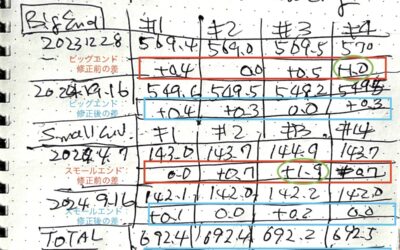 Big End #1 #2 #3 #4
2023 12 28 569.4 569.0 569.5 570
ビッグエンド
修正前の差 +0.4 0.0 +0.5 +1.0
2024.9.16 549.6 549.5 549.2 549.5
ビッグエンド
修正後の差 +0.4 +0.3 0.0 +0.3
Small End. #1 #2 #3 #4
2024.4.7 143.0 143.7 144.9 143.7
スモールエンド
修正前の差 0.0 +0.7 +1.9 +0.7
2024.9.16 142.1 142.0 142.2 142.0
スモールエンド
修正後の差 +0.1 0.0 +0.2 0.0
TOTAL 692.4 692.4 692.2 692.5